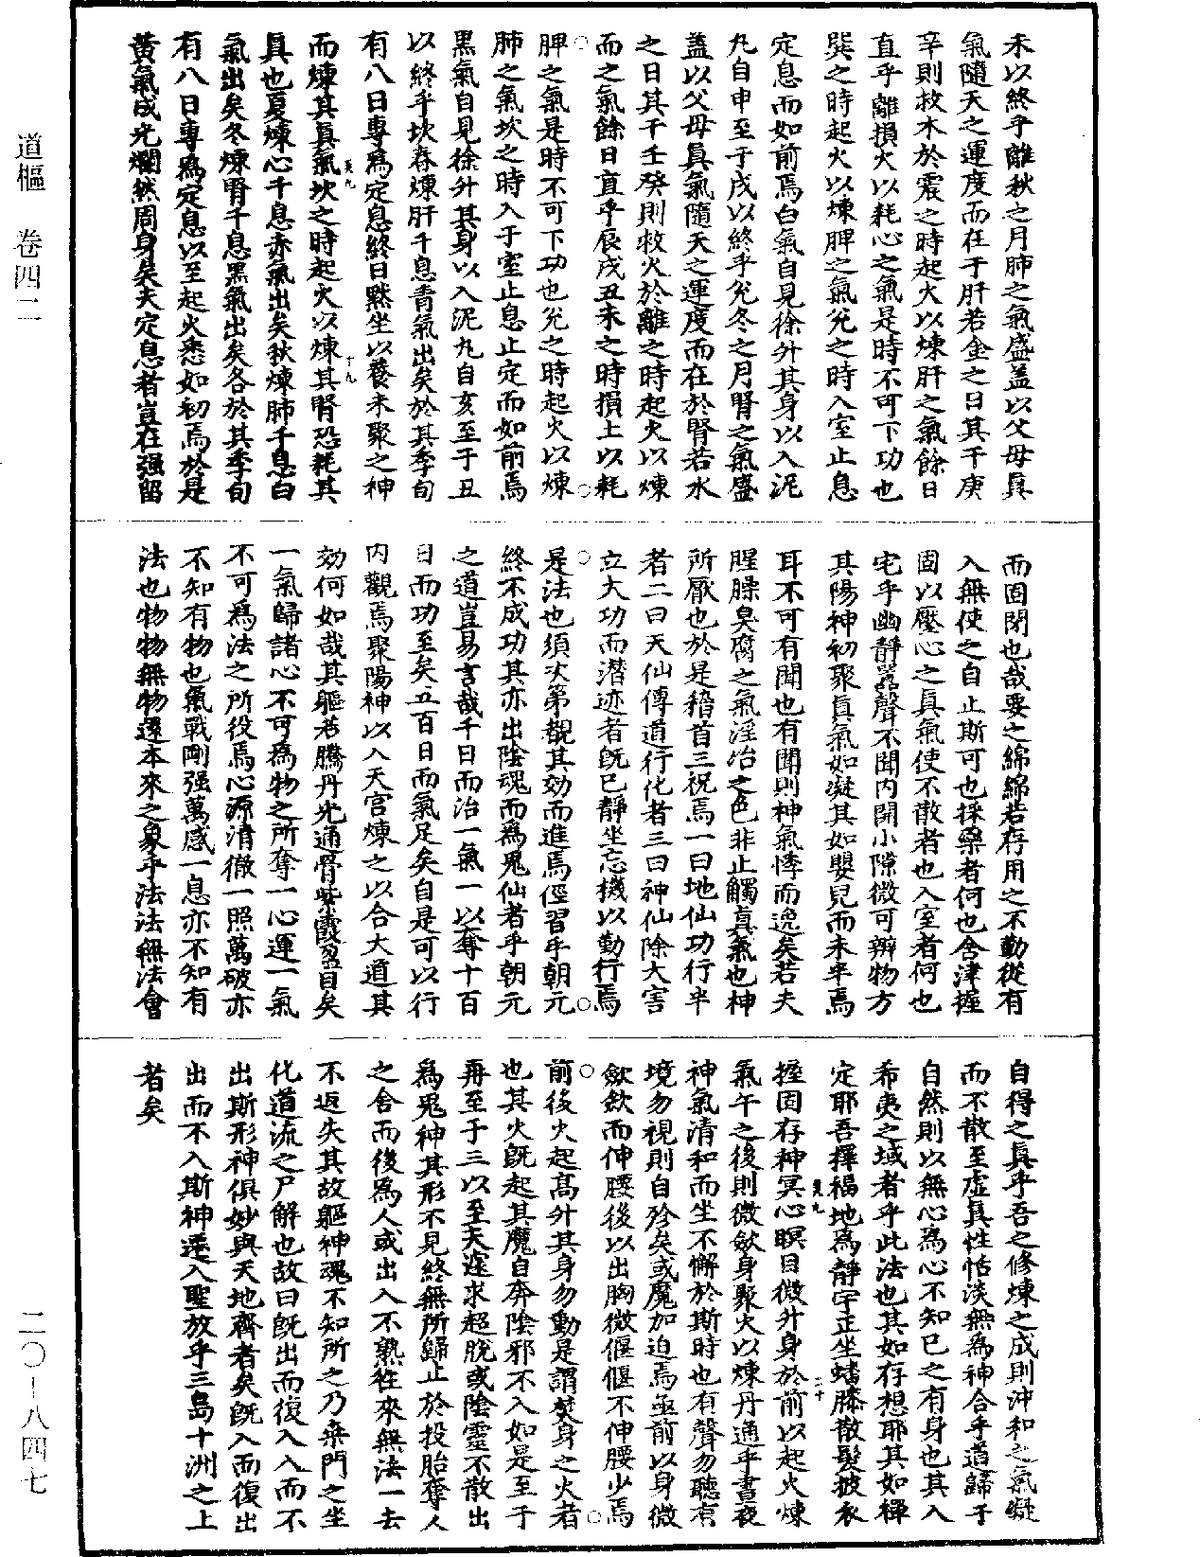 未以終乎離秋之月肺之氣盛盖以父母眞
氣隨天之運度而在于肝若金之日其干庚
辛則救木於震之時起火以煉肝之氣餘日
直乎離損火以耗心之氣是時不可下功也
巽之時起火以煉脾之氣兊之時入室止息
定息而如前焉白氣自見徐升其身以入泥
九自申至于戌以終乎兊冬之月腎之氣盛
盖以父母眞氣隨天之運度而在於腎若水
之日其干壬癸則救火於離之時起火以煉
而之氣餘日直乎辰戌丑未之時損土以耗
脾之氣是時不可下功也兊之時起火以煉
肺之氣坎之時入于室止息止定而如前焉
黑氣自見徐升其身以入泥九自亥至于丑
以終乎坎春煉肝千息青氣出矣於其季旬
有八日專爲定息終日黙坐以養未聚之神
而煉其眞氣坎之時起火以煉其腎恐耗其
眞也夏煉心千息赤氣出矣秋煉肺千息白
氣出矣冬煉腎千息黑氣出矣各於其季旬
有八日專爲定息以至起火悉如初焉於是
黃氣成光爛然周身矣夫定息者豈在强留
而固閉也哉要之綿綿若存用之不勤從有
入無使之自止斯可也採藥者何也含津握
固以壓心之眞氣使不散者也入室者何也
宅乎幽靜嚣聲不聞内開小隙微可辨物方
其陽神初聚眞氣如凝其如嬰兒而未半焉
耳不可有聞也有聞則神氣悸而逸矣若夫
腥臊臭腐之氣淫冶之色非止觸眞氣也神
所厭也於是稽首三祝焉一曰地仙功行半
者二曰天仙傳道行化者三曰神仙除大害
立大功而潛迹者旣已靜坐忘機以勤行焉
是法也須次第觀其効而進焉俓習乎朝元
終不成功其亦出陰魂而爲鬼仙者乎朝元
之道豈易言哉千日而治一氣一以奪十百
日而功至矣五百日而氣足矣自是可以行
内觀焉聚陽神以入天宫煉之以合大道其
効何如哉其軀若騰丹光通骨紫霞盈目矣
一氣歸諸心不可爲物之所奪一心運一氣
不可爲法之所役焉心源清徹一照萬破亦
不知有物也氣戰剛强萬感一息亦不知有
法也物物無物還本來之象乎法法無法會
自得之眞乎吾之修煉之成則沖和之氣凝
而不散至虛眞性恬淡無爲神合乎道歸于
自然則以無心爲心不知已之有身也其入
希夷之域者乎此法也其如存想耶其如禪
定耶吾擇福地爲靜宇正坐蟠膝散髮披衣
握固存神冥心瞑目微升身於前以起火煉
氣午之後則微斂身聚火以煉丹通乎晝夜
神氣清和而坐不懈於斯時也有聲勿聽有
境勿視則自殄矣或魔加迫焉亟前以身微
斂斂而伸腰後以出胸微偃偃不伸腰少焉
前後火起高升其身勿動是謂焚身之火者
也其火旣起其魔自奔陰邪不入如是至于
再至于三以至天遊求超脫或陰靈不散出
爲鬼神其形不見終無所歸止於投胎奪人
之舍而後爲人或出入不熟徃來無法一去
不返失其故軀神魂不知所之乃桒門之坐
化道流之尸解也故曰旣出而復入入而不
出斯形神俱妙與天地齊者矣旣入而復出
出而不入斯神遷入聖放乎三島十洲之上
者矣
道樞 卷四二
二〇—八四七